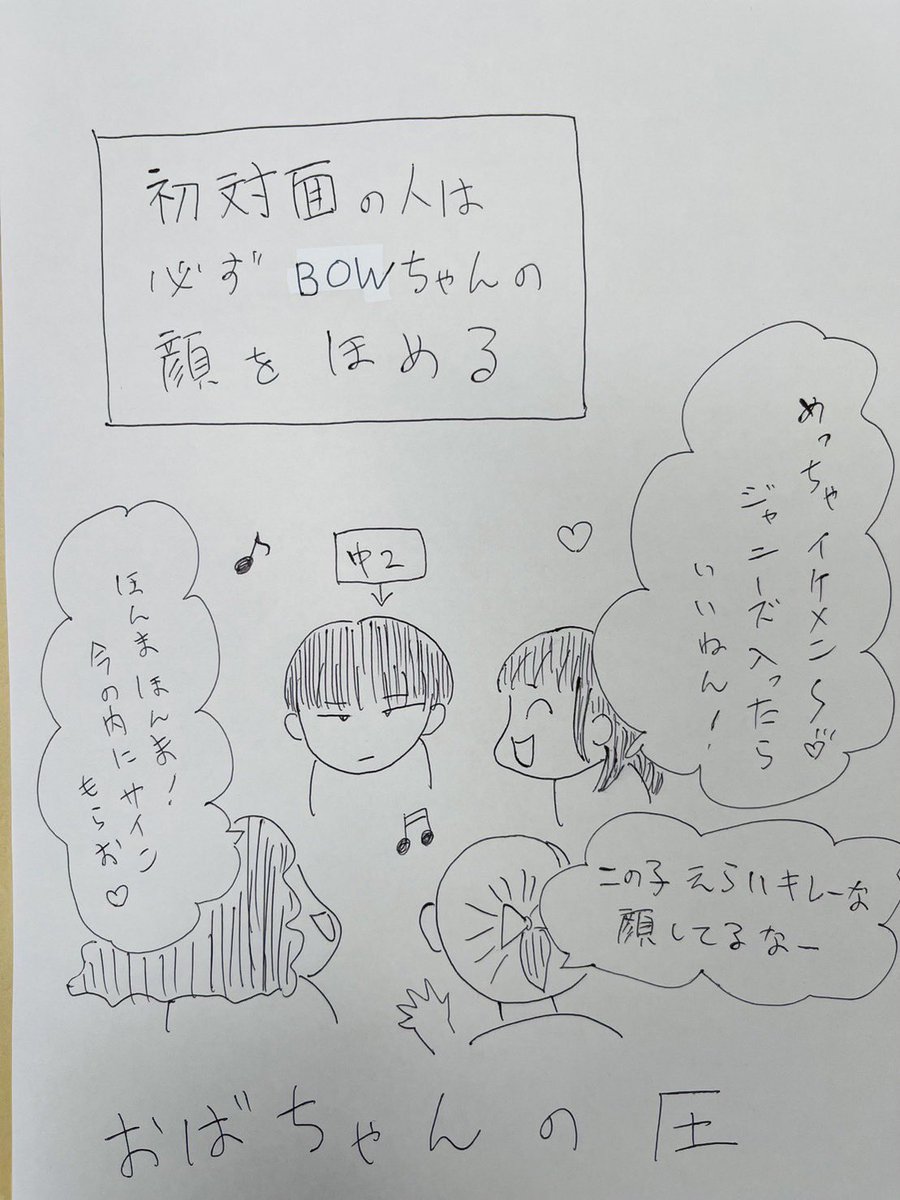 初対面の人は
必ず BOWちゃんの
顔を ほめる
めっちゃイケメン〜♡
ジャニーズ入ったら
いいねん!
中2
ほんまほんま!
今の内にサイン
もらお♡
この子 えらいキレーな
顔してるなー
おばちゃんの圧